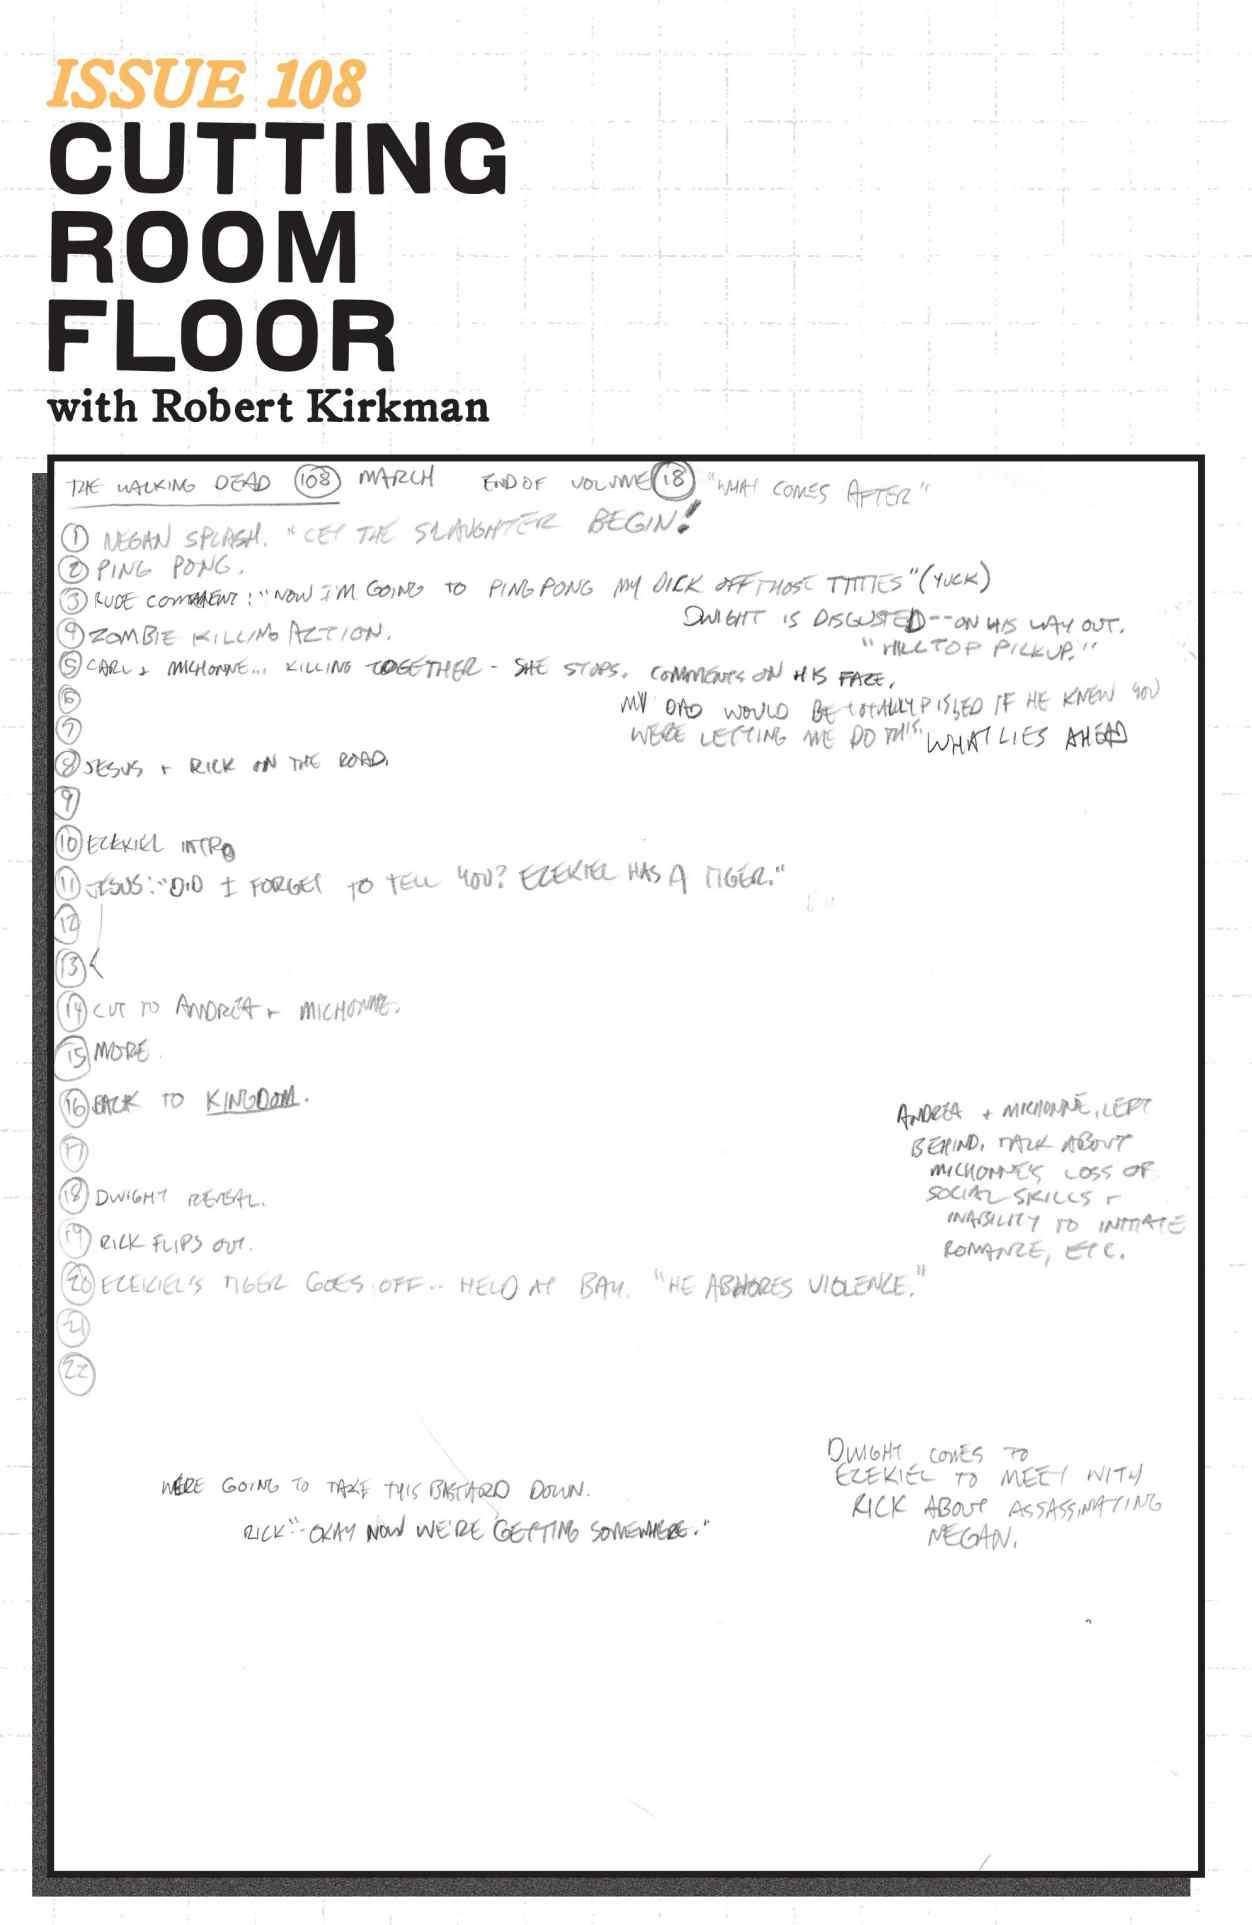 ISSUE 108
CUTTING
ROOM
FLOOR
with Robert Kirkman
THE WALKING DEAD 108 MARCH END OF VOLUME 18 "WHAT COMES AFTER"
1 NEGAN SPLASH. "LET THE SLAUGHTER BEGIN!
2 PING PONG.
3 RUDE COMMENT: "NOW I'M GOING TO PING PONG MY DICK OFF THOSE TITTIES" (YUCK)
DWIGHT IS DISGUSTED -- ON HIS WAY OUT.
"HILLTOP PICKUP."
4 ZOMBIE KILLING ACTION.
5 CARL + MICHONNE... KILLING TOGETHER - SHE STOPS. COMMENTS ON HIS FACE.
6
MY DAD WOULD BE TOTALLY PISSED IF HE KNEW YOU
7
WERE LETTING ME DO THIS. WHAT LIES AHEAD
8 JESUS + RICK ON THE ROAD.
9
10 EZEKIEL INTRO
11 JESUS: "DID I FORGET TO TELL YOU? EZEKIEL HAS A TIGER."
12
13
14 CUT TO ANDREA + MICHONNE.
15 MORE.
16 BACK TO KINGDOM.
ANDREA + MICHONNE, LEFT
BEHIND. TALK ABOUT
MICHONNE'S LOSS OF
SOCIAL SKILLS +
INABILITY TO INITIATE
ROMANCE, ETC.
17
18 DWIGHT REVEAL.
19 RICK FLIPS OUT.
20 EZEKIEL'S TIGER GOES OFF... HELD AT BAY. "HE ABHORES VIOLENCE."
21
22
WERE GOING TO TAKE THIS BASTARD DOWN.
RICK "OKAY NOW WE'RE GETTING SOMEWHERE."
DWIGHT COMES TO
EZEKIEL TO MEET WITH
RICK ABOUT ASSASSINATING
NEGAN.